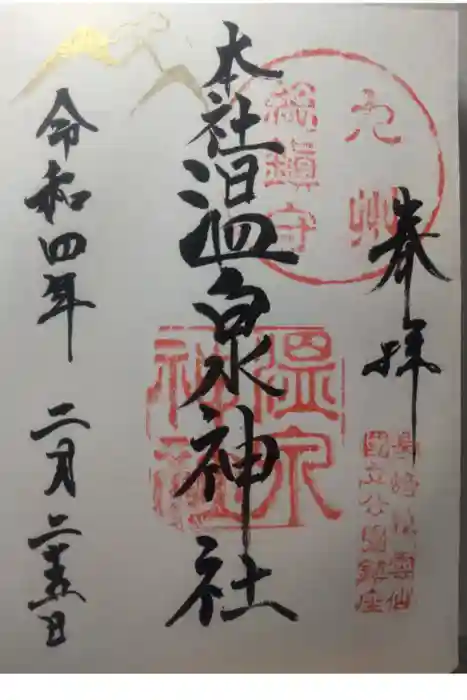 奉拝
長崎県雲仙
国立公園鎮座
九州
総鎮守
本社温泉神社
温泉
神社
令和四年 二月二十五日